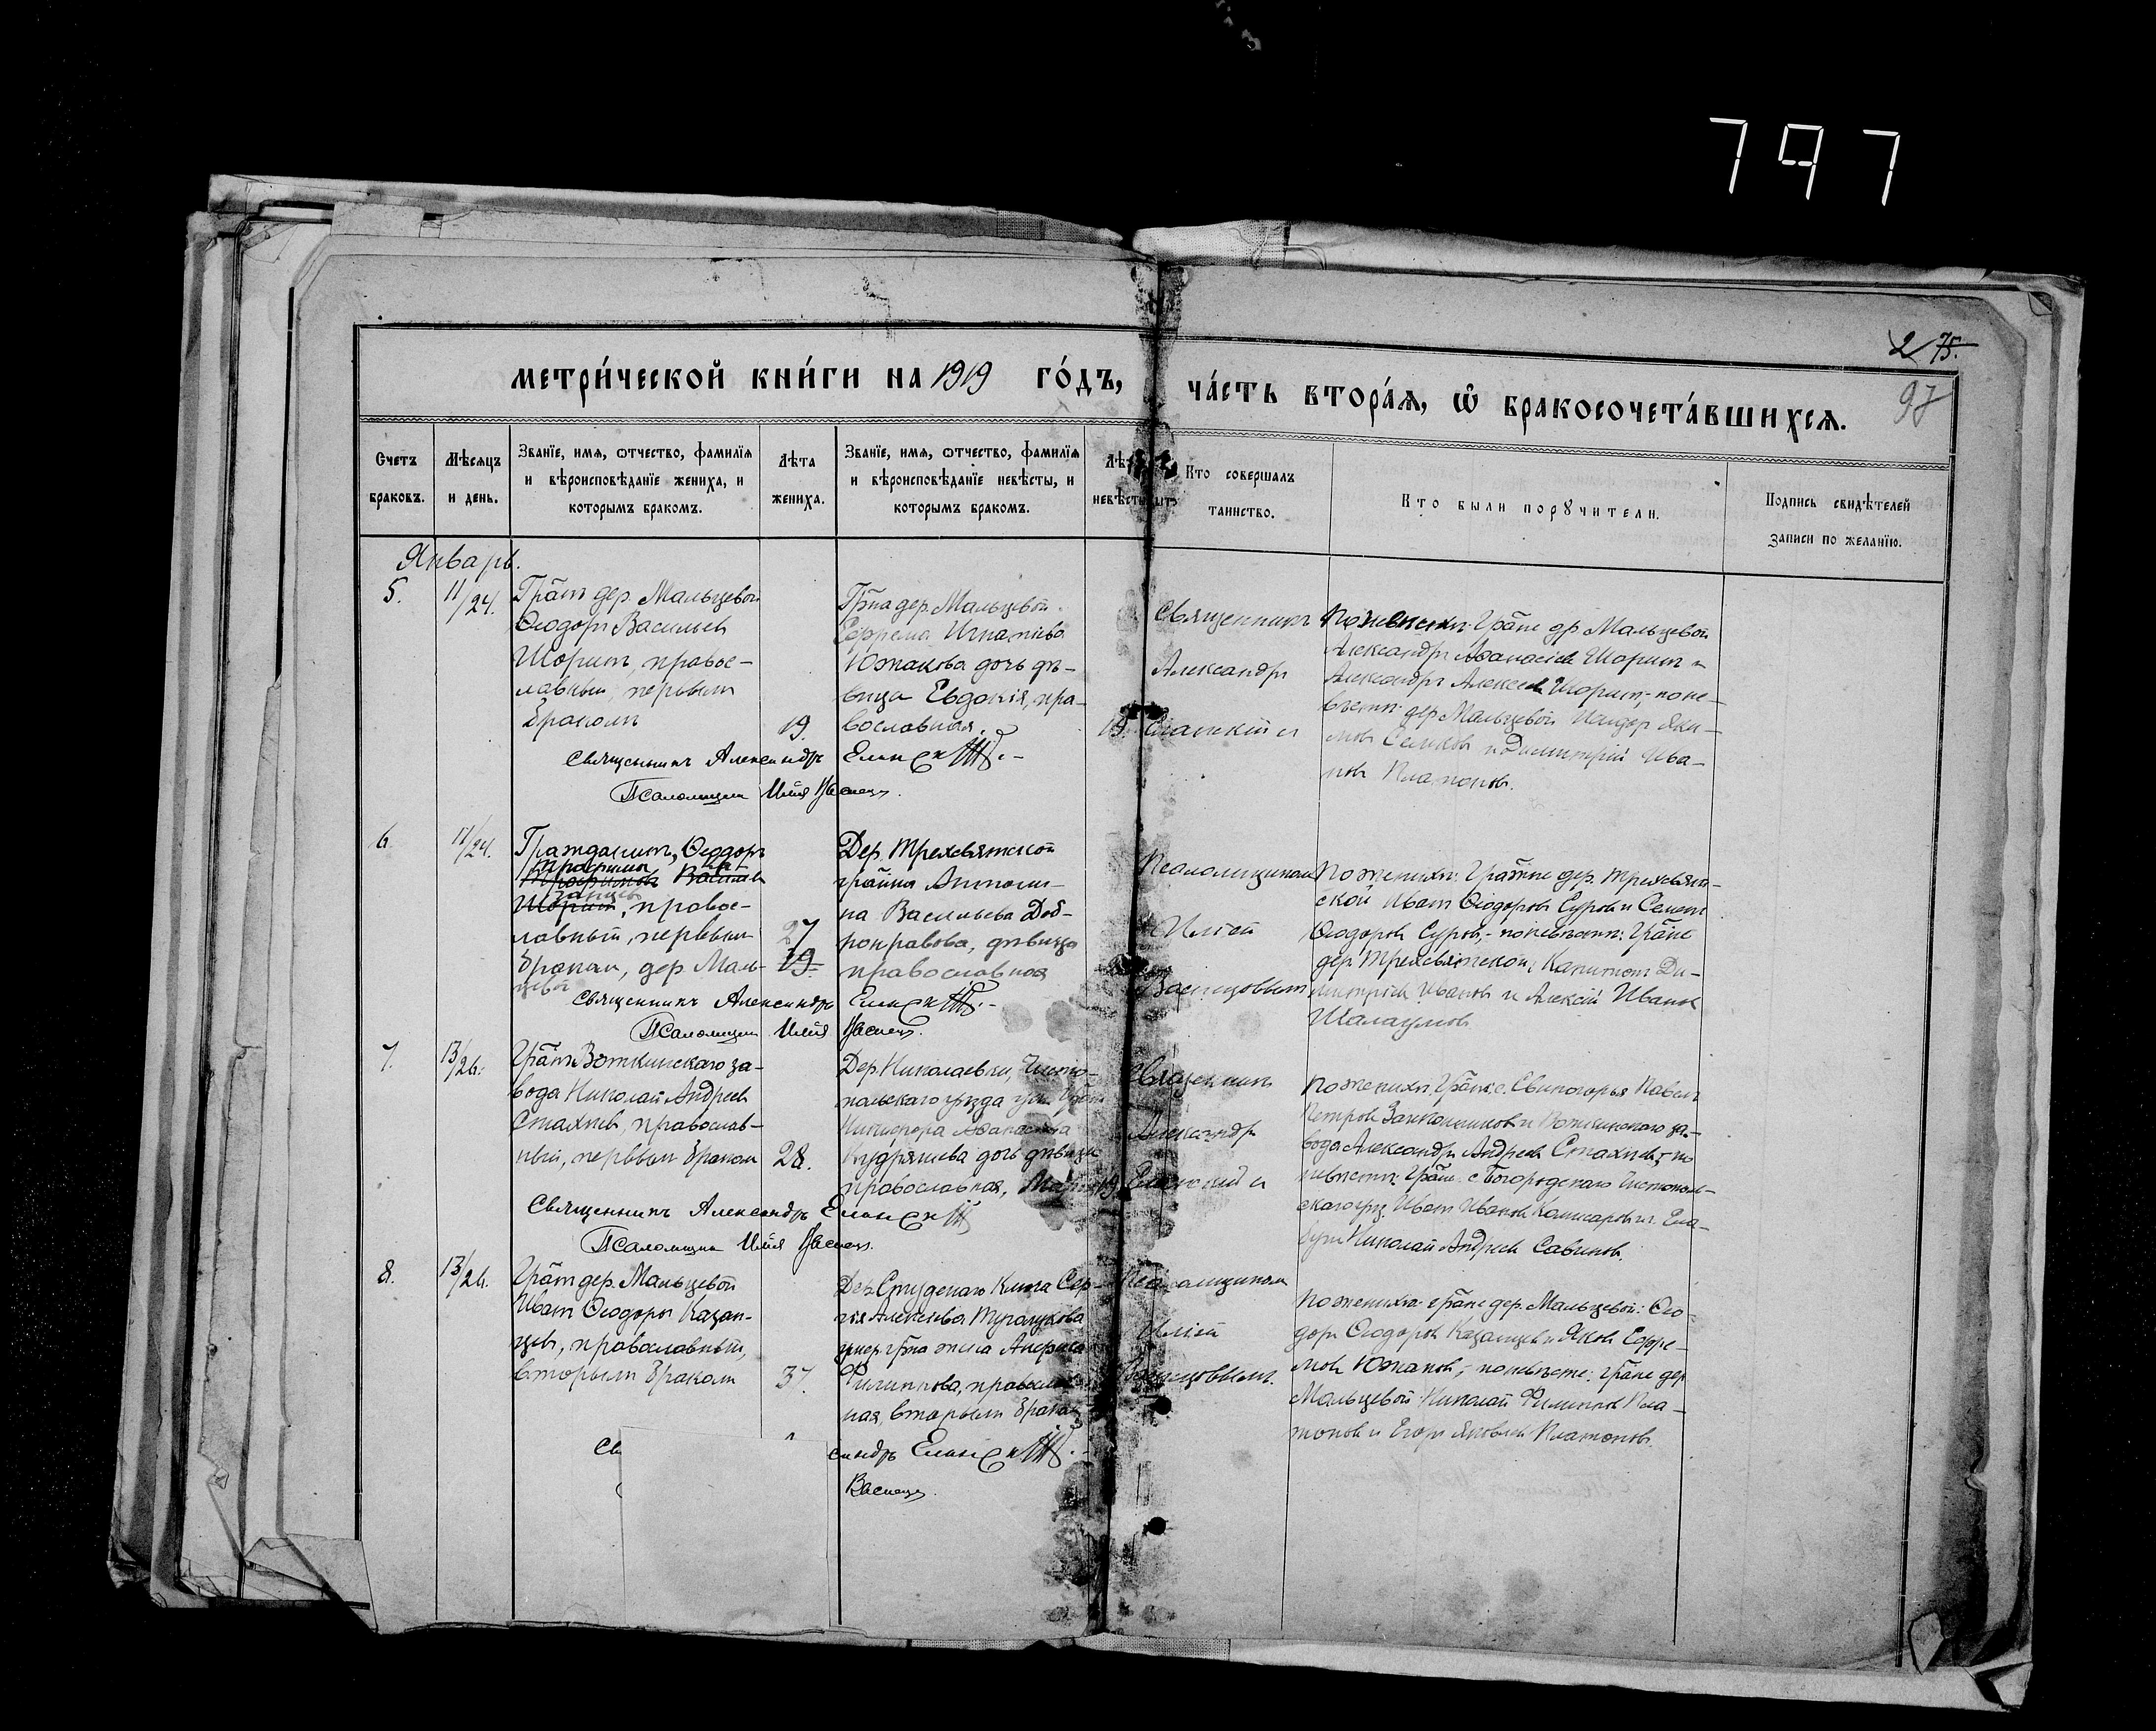 797
2 75.
97
метри́ческой кни́ги на 1919 го́дъ, ча́сть втора́ѧ, ѡ҆ бракосочета́вшихсѧ.
Счетъ браковъ.
Мѣсяцъ и день.
Званїе, имѧ, ѿтчество, фамилїѧ
и вѣроисповѣданїе жениха, и
которымъ бракомъ.
Лѣта
жениха.
Званїе, имѧ, ѿтчество, фамилїѧ
и вѣроисповѣданїе невѣсты, и
которымъ бракомъ.
невѣсты
Кто совершалъ
таинство.
Кто были порꙋчители.
Подпись свидѣтелей
записи по желанїю.
Январь.
5.
11/24.
Гр̃атъ дер. Мальцевой
Ѳеодоръ Васильев
Шоринъ, правос-
лавный, первымъ
бракомъ
19.
Гр̃на дер. Мальцевой
Ефрема Игнатіева
Южакова дочь дѣ-
вица Евдокія, пра-
вославная.
19.
Священникъ
Александръ
По женихѣ: Гр̃ане др. Мальцевой
Александръ Аѳанасіев Шоринъ и
Александръ Алексѣев Шоринъ; по не-
вѣстѣ: дер. Мальцевой
Димитрій Ива-
новъ Платоновъ.
Священникъ Александръ
Псаломщикъ Илія
6.
11/24.
Гражданинъ, Ѳеодоръ
Трофимов Васильев
Шоринъ, правос-
лавный, первымъ
бракомъ, дер. Маль-
цевой
27
19.
Дер. Трехсвятской
гр̃анка Антони-
на Васильева Доб-
ронравова, дѣвица
православная
Псаломщикомъ
Иліей
Васнецовымъ
По женихѣ: Гр̃ане дер. Трехсвят-
ской Иванъ Ѳеодоровъ Суровъ и Семенъ
Ѳеодоровъ Суровъ; по невѣстѣ: Гр̃ане
дер. Трехсвятской: Капитонъ Ди-
митріевъ Ивановъ и Алексій Иванов
Шалагуновъ
Священникъ Александръ
Псаломщикъ Илія Васнец.
7.
13/26.
Гр̃атъ Воткинскаго за-
вода Николай Андреев
Стахѣев, православ-
ный, первымъ бракомъ
28.
Дер. Николаевки, Чисто-
польскаго уѣзда
Никифора Аѳанасіева
Кудряшева дочь дѣвица
православная, Марія
19
Священник
Александр
По женихѣ: Гр̃ане с. Свиногорья Павелъ
Петров и Воткинскаго за-
вода Александръ Андреев Стахѣев; по
невѣстѣ: Гр̃ане с. Богородскаго Чистополь-
скаго уѣз. Иванъ Иванов Комисаров и г. Ела-
буги Николай Андреев Савинов.
Священникъ Александръ
Псаломщикъ Илія Васнец.
8.
13/26.
Гр̃ат дер. Мальцевой
Иванъ Ѳеодоров Казан-
цев, православный,
вторымъ бракомъ
37.
Дер. Студенаго Ключа Сер-
гія Алексѣева
умер. гр̃на жена
Филиппова, православ-
ная, вторымъ бракомъ
Псаломщикомъ
Иліей
Васнецовымъ.
По женихѣ: гр̃ане дер. Мальцевой: Ѳео-
доръ Ѳеодоров Казанцев и Яков Ефре-
мов Южаков; по невѣсте: гр̃ане дер.
Мальцевой: Николай Филиппов Пла-
тонов и Егоръ Яковлев Платонов.
Св
сандръ
Васнец.